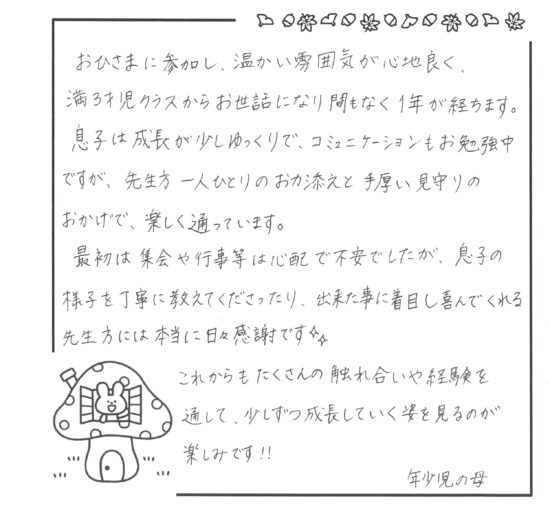 おひさまに参加し、温かい雰囲気が心地良く、
満3才児クラスからお世話になり間もなく1年が経ちます。
息子は成長が少しゆっくりで、コミュニケーションもお勉強中
ですが、先生方一人ひとりのお力添えと手厚い見守りの
おかげで、楽しく通っています。
最初は集会や行事等は心配で不安でしたが、息子の
様子を丁寧に教えてくださったり、出来た事に着目し喜んでくれる
先生方には本当に日々感謝です✨
これからもたくさんの触れ合いや経験を
通して、少しずつ成長していく姿を見るのが
楽しみです!!
年少児の母